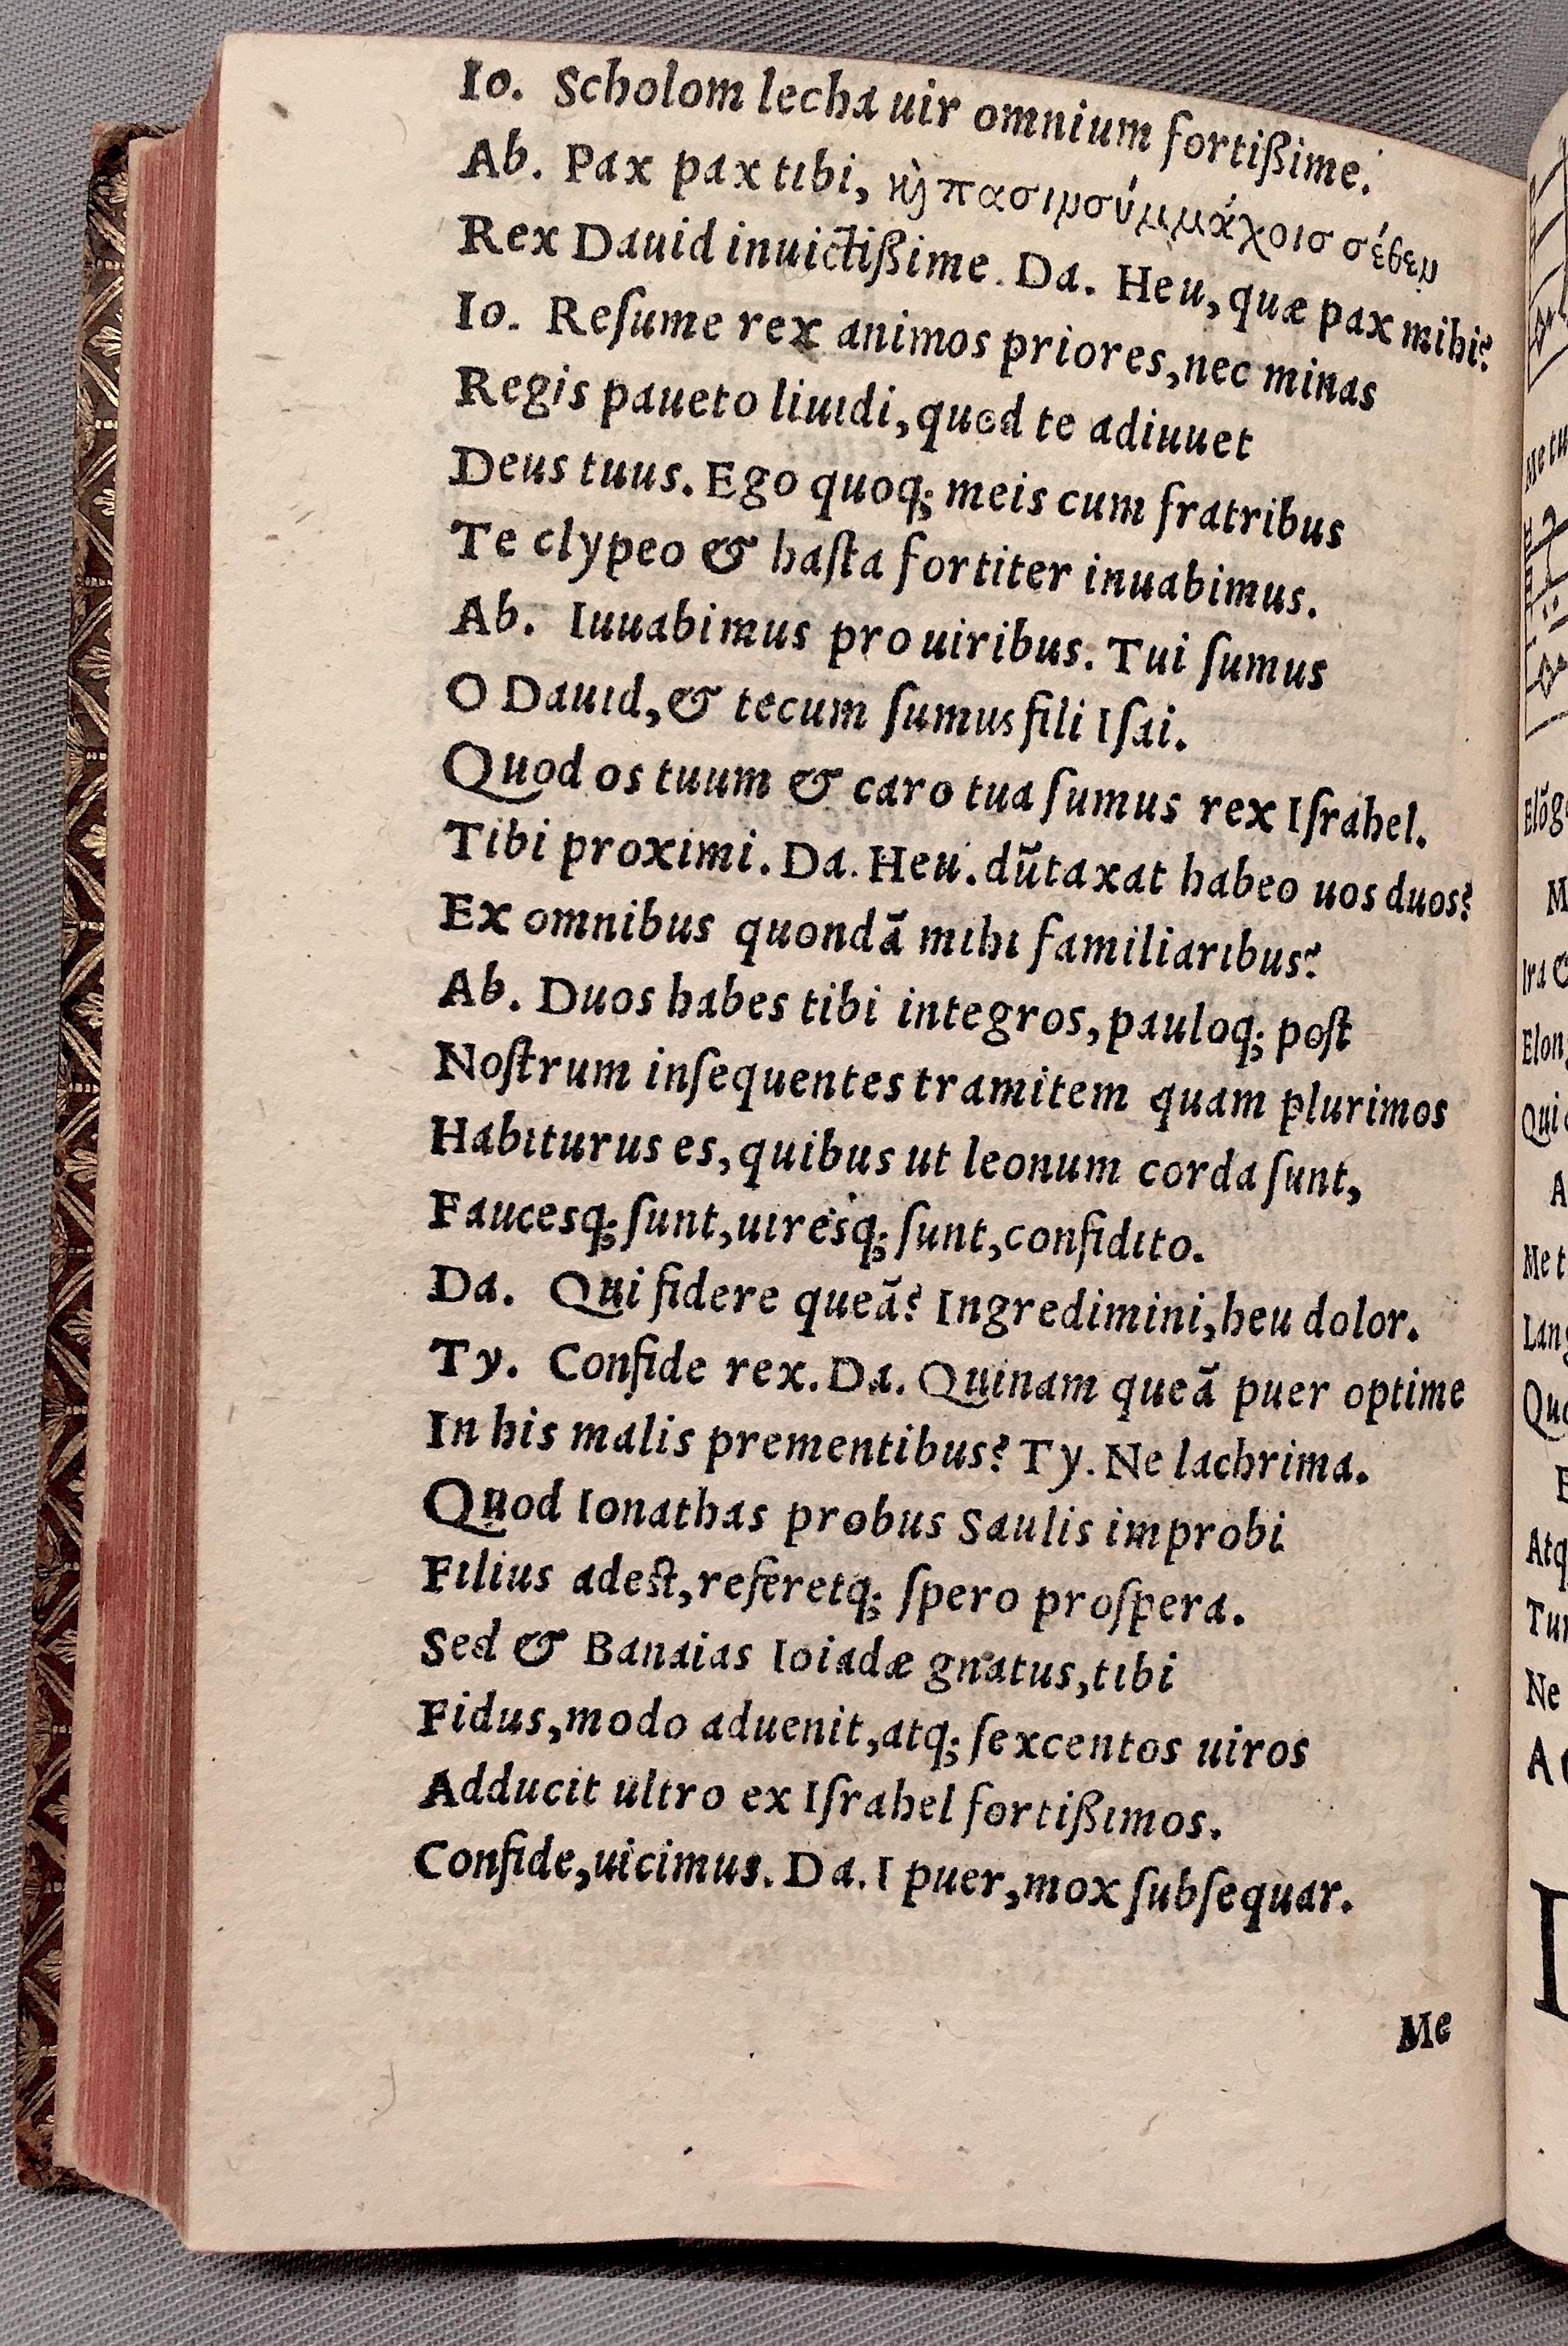 Io. Scholom lecha uir omnium fortißime.
Ab. Pax pax tibi, κỳ πασιν συμμάχοισ σέθεν
Rex Dauid inuictißime. Da. Heu, quæ pax mihi?
Io. Reſume rex animos priores, nec minas
Regis paueto liuidi, quod te adiuuet
Deus tuus. Ego quoq; meis cum fratribus
Te clypeo & haſta fortiter inuabimus.
Ab. Iuuabimus pro uiribus. Tui ſumus
O Dauid, & tecum ſumus fili Iſai.
Quod os tuum & caro tua ſumus rex Iſrahel.
Tibi proximi. Da. Heu. dũtaxat habeo uos duos?
Ex omnibus quondã mihi familiaribus?
Ab. Duos habes tibi integros, pauloq; poſt
Noſtrum inſequentes tramitem quam plurimos
Habiturus es, quibus ut leonum corda ſunt,
Faucesq; ſunt, uiresq; ſunt, confidito.
Da. Qui fidere queã? Ingredimini, heu dolor.
Ty. Confide rex. Da. Quinam queã puer optime
In his malis prementibus? Ty. Ne lachrima.
Quod Ionathas probus Saulis improbi
Filius adeſt, referetq; ſpero proſpera.
Sed & Banaias Ioiadæ gnatus, tibi
Fidus, modo aduenit, atq; ſexcentos uiros
Adducit ultro ex Iſrahel fortißimos.
Confide, uicimus. Da. I puer, mox ſubſequar.
Me